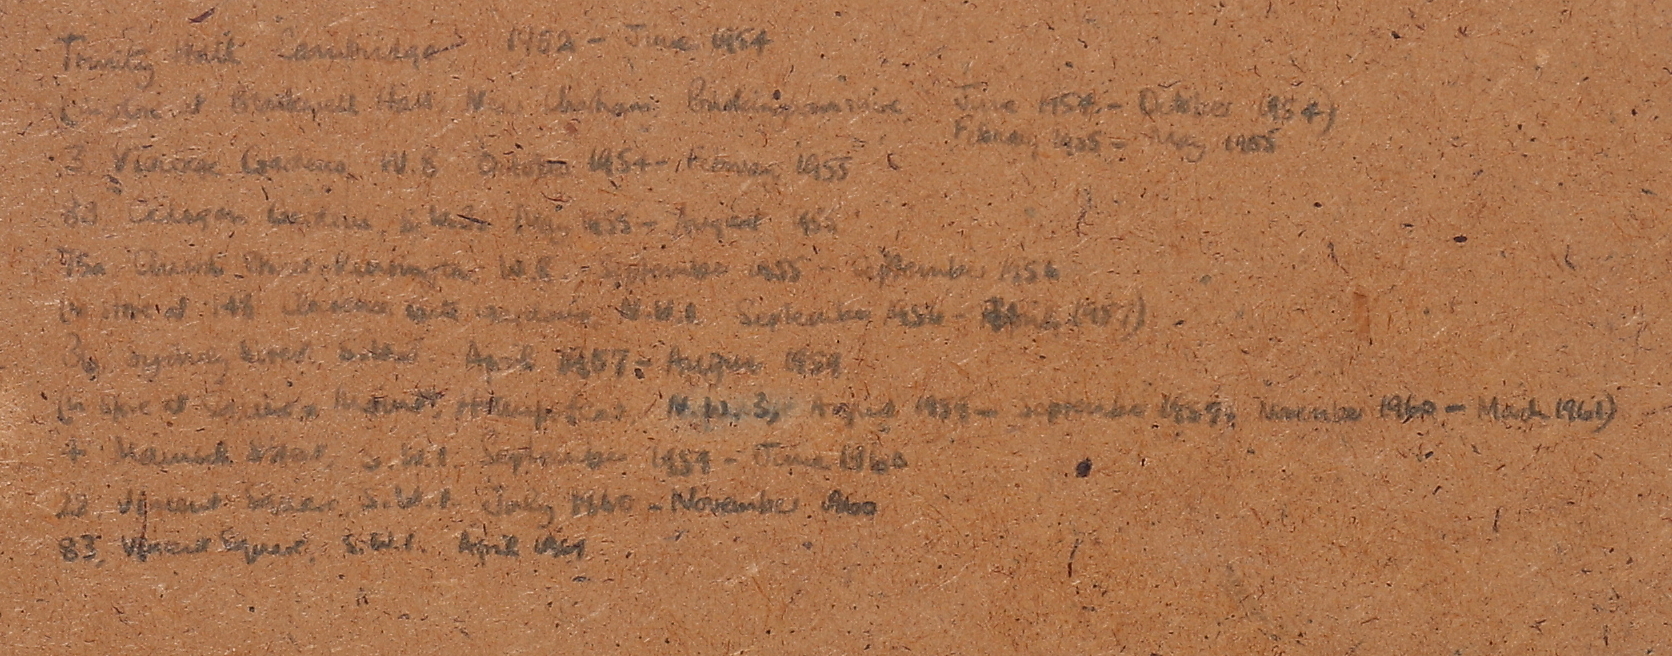 Trinity Hall Cambridge 1952 - June 1954
(in store at Hall, Buckinghamshire June 1954 - October 1954)
February 1955 - May 1955
3, Vicarage Gardens, W.8 October 1954 - February 1955
83 Cadogan Gardens, S.W.3. May 1955 - August 1955
75a, Church Street, Kensington, W.8. - September 1955 - September 1956
(in store at 148 Clarence gate gardens, N.W.1 September 1956 - April 1957)
Sydney Street, April 1957 - August 1959
(in store at Hampstead, N.W.3, August 1959 - September 1959, November 1960 - March 1961)
4 Warwick S.W.1. September 1959 - June 1960
22, Vincent Square, S.W.1. July 1960 - November 1960
83, Vincent Square, S.W.1. April 1961